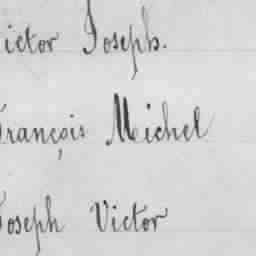 ictor Joseph.
François Michel
Joseph Victor